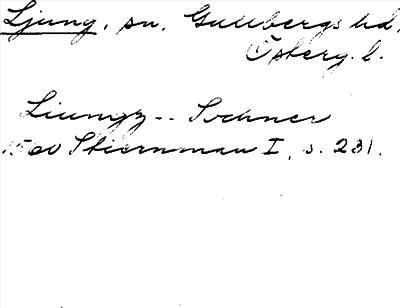 Ljung, sn, Gullbergs hd,
Österg. l.
Liungz-- Sochner
1560 Stiernman I, s. 231.